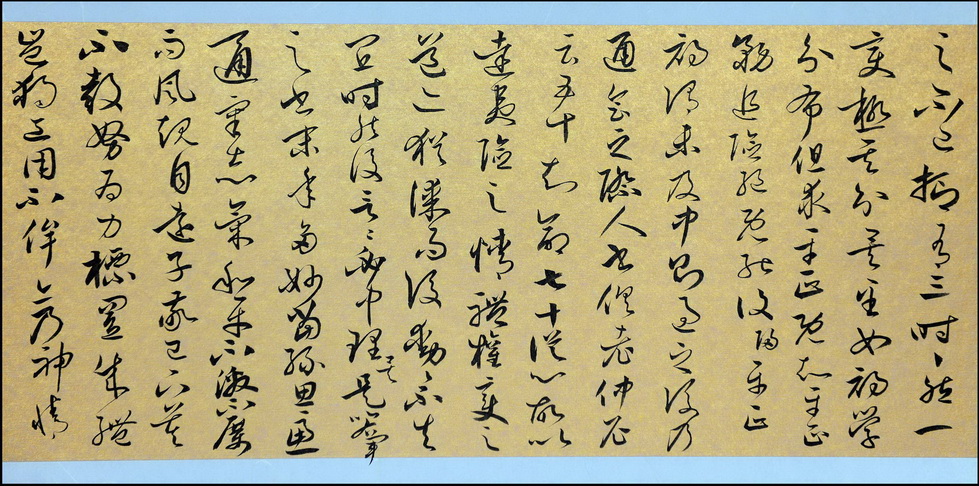 之不已抑有三時〻然一
變極其分矣至如初學
分布但求平正既知平正
務追險絕既能復歸平正
初謂未及中則過之後乃
通會之際人書俱老仲尼
云五十知命七十從心故以
達夷險之情體權變之
道亦猶謀而後動〻不失
宜時然後言〻必中理矣是以右軍
之書末年多妙當緣思慮
通審志氣和平不激不厲
而風規自遠子敬已下莫
不鼓努為力標置成體
豈獨工用不侔亦乃神情